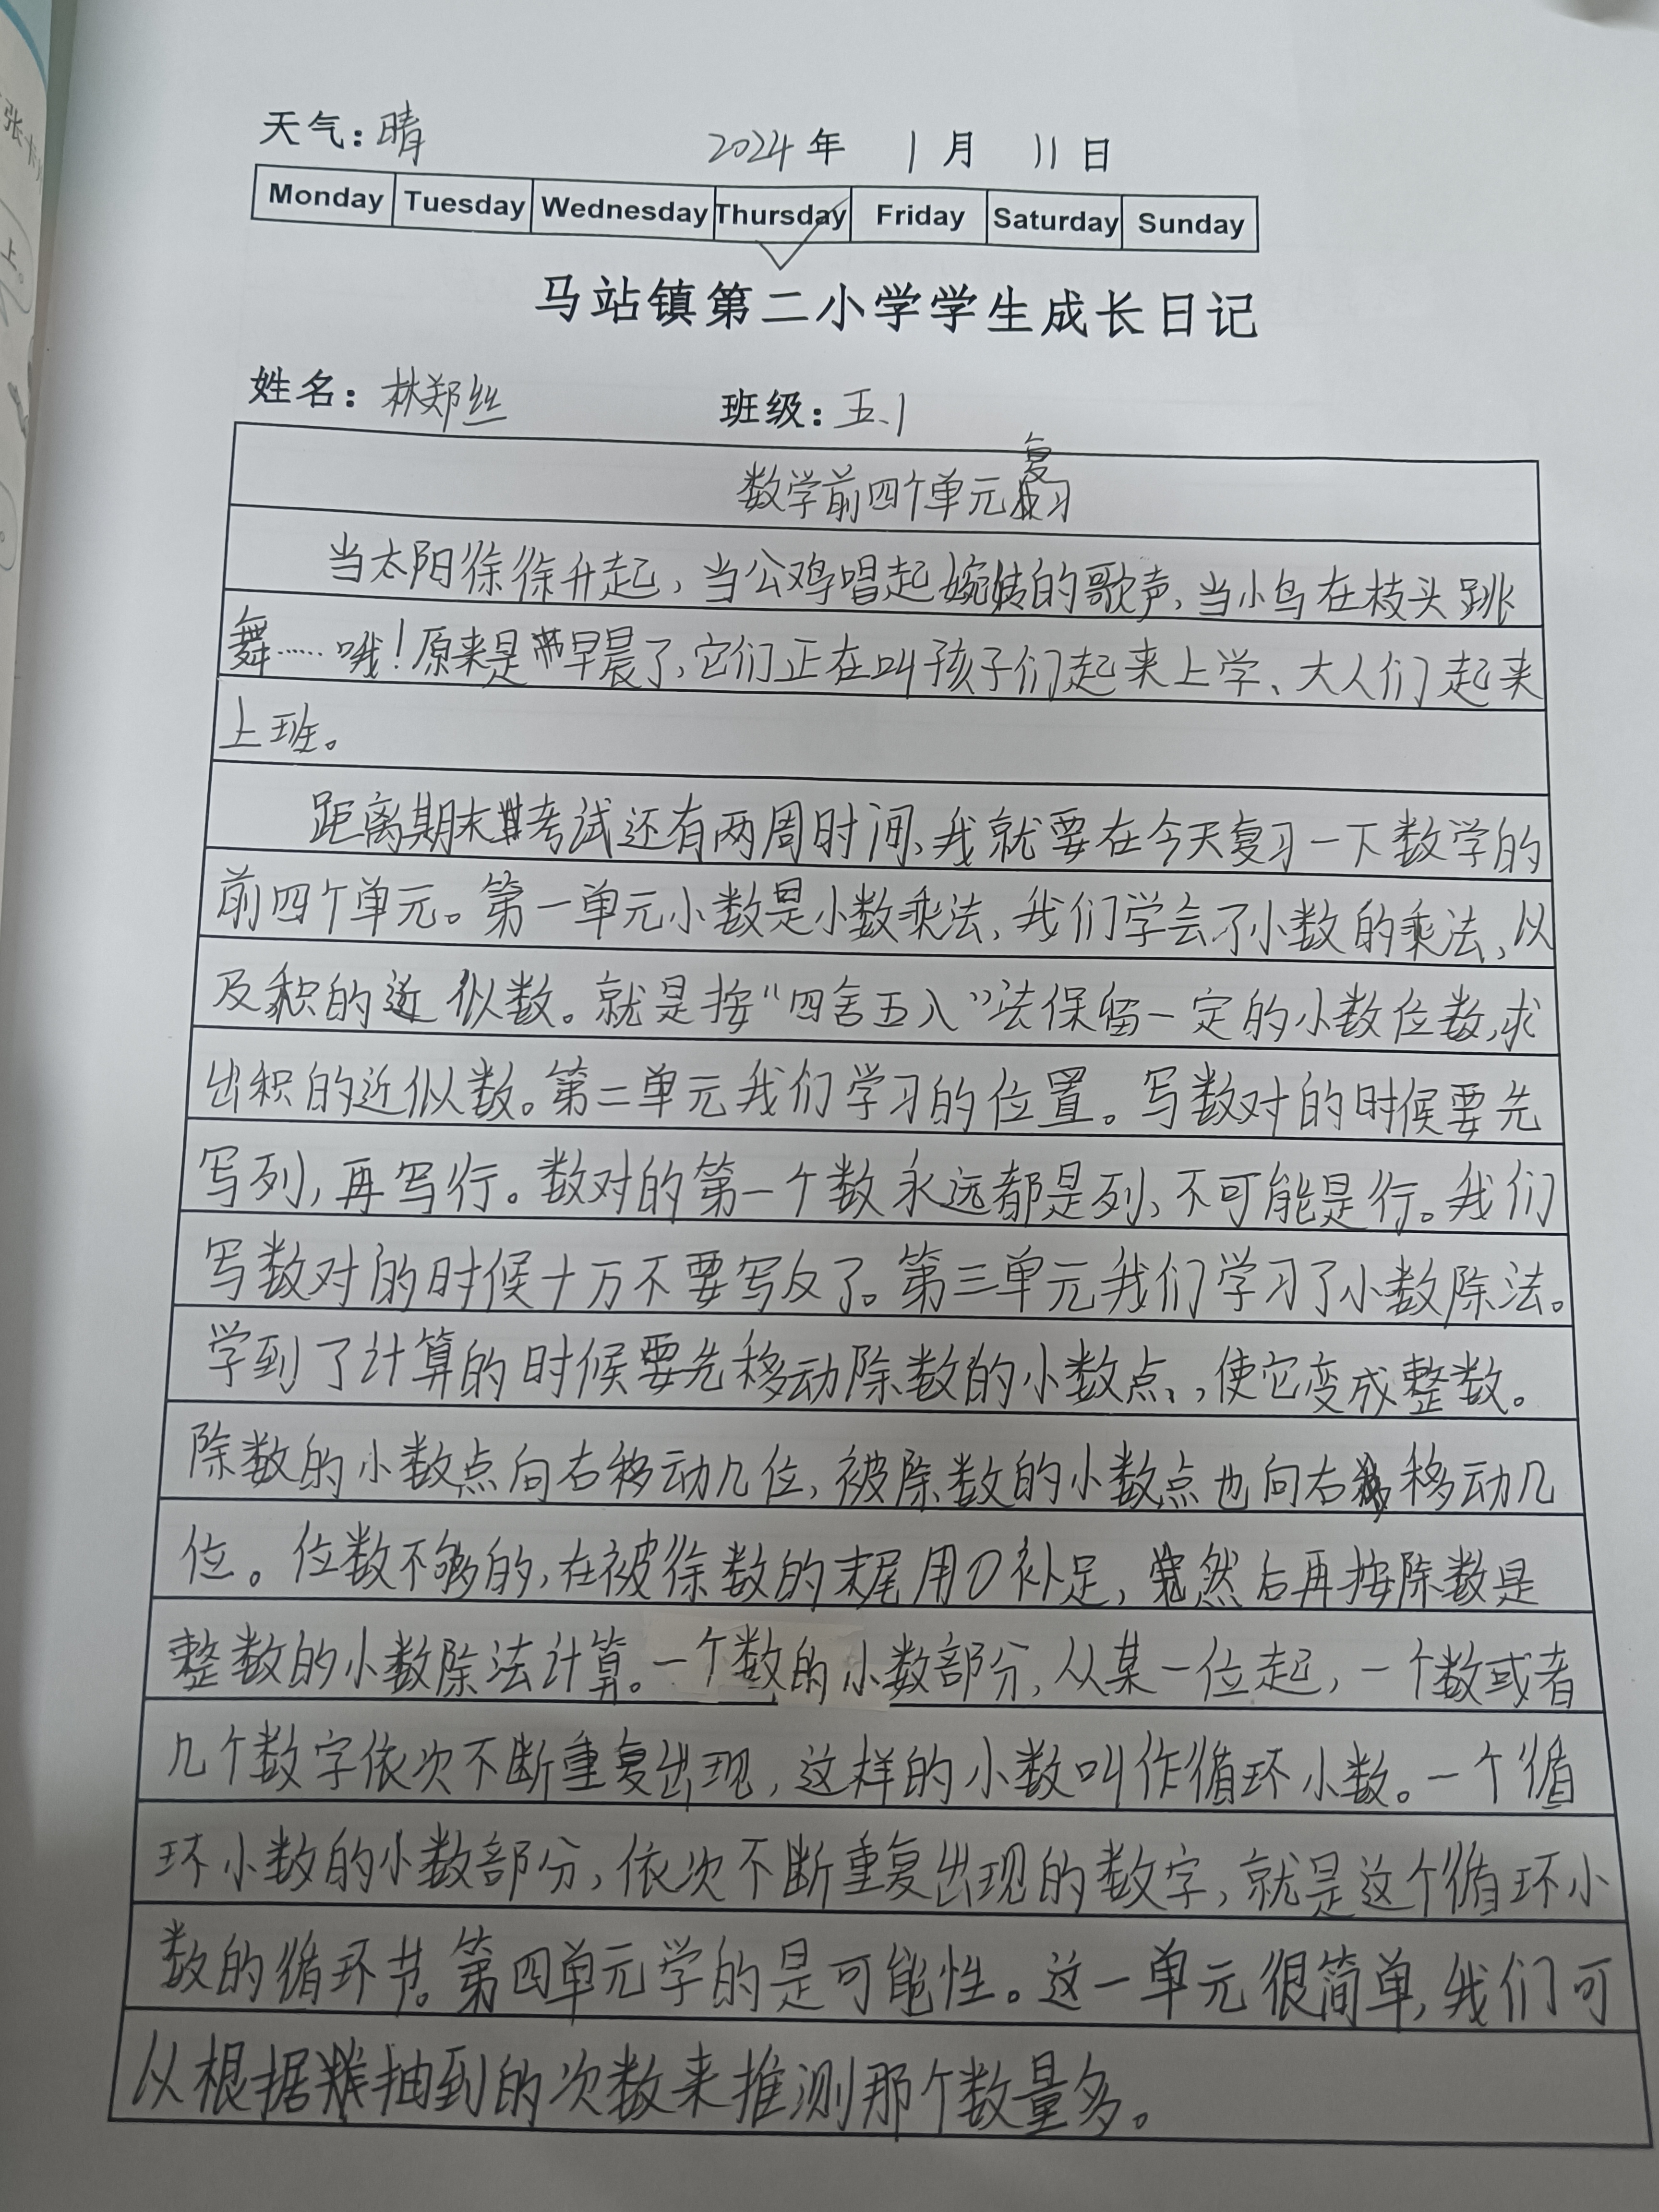 天气：晴 2024年 1月 11日
Monday Tuesday Wednesday Thursday Friday Saturday Sunday
马站镇第二小学学生成长日记
姓名：林郑丝 班级：五.1
数学前四个单元复习
当太阳徐徐升起，当公鸡唱起婉转的歌声，当小鸟在枝头跳
舞……哦！原来是早晨了，它们正在叫孩子们起来上学、大人们起来
上班。
距离期末考试还有两周时间，我就要在今天复习一下数学的
前四个单元。第一单元小数是小数乘法，我们学会了小数的乘法，以
及积的近似数。就是按“四舍五入”法保留一定的小数位数，求
出积的近似数。第二单元我们学习的位置。写数对的时候要先
写列，再写行。数对的第一个数永远都是列，不可能是行。我们
写数对的时候十万不要写反了。第三单元我们学习了小数除法。
学到了计算的时候要先移动除数的小数点，，使它变成整数。
除数的小数点向右移动几位，被除数的小数点也向右移动几
位。位数不够的，在被徐数的末尾用0补足，然后再按除数是
整数的小数除法计算。一个数的小数部分，从某一位起，一个数或者
几个数字依次不断重复出现，这样的小数叫作循环小数。一个循
环小数的小数部分，依次不断重复出现的数字，就是这个循环小
数的循环节。第四单元学的是可能性。这一单元很简单，我们可
以根据抽到的次数来推测那个数量多。